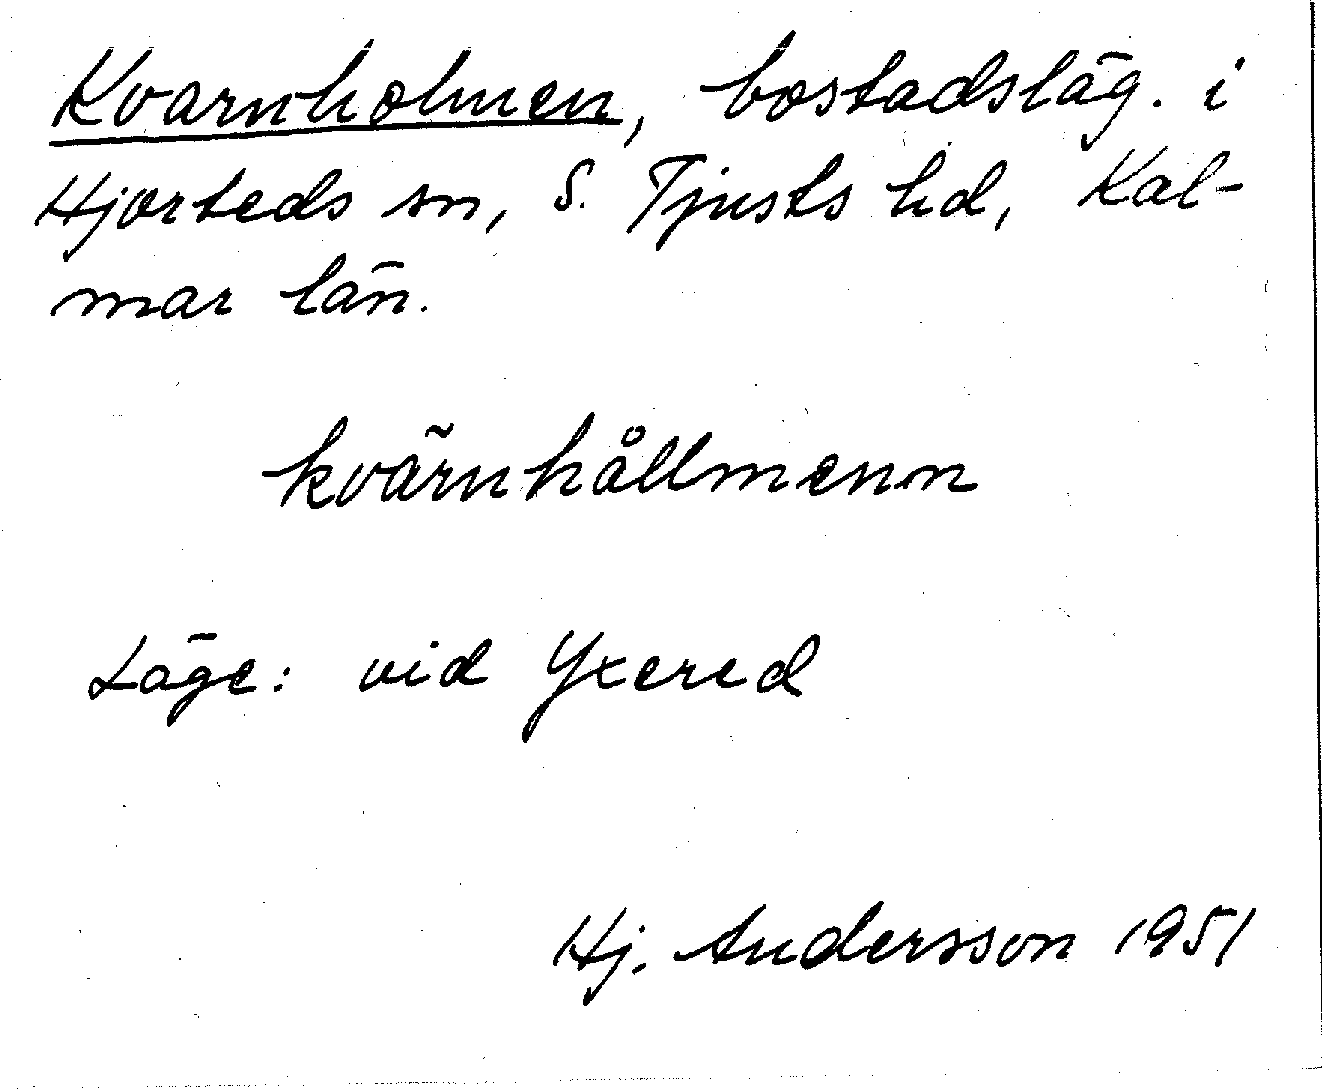 Kvarnholmen, bostadsläg. i
Hjorteds sn, S. Tjusts hd, Kal-
mar län.
kvärnhållmenn
Läge: vid Yxered
Hj. Andersson 1951